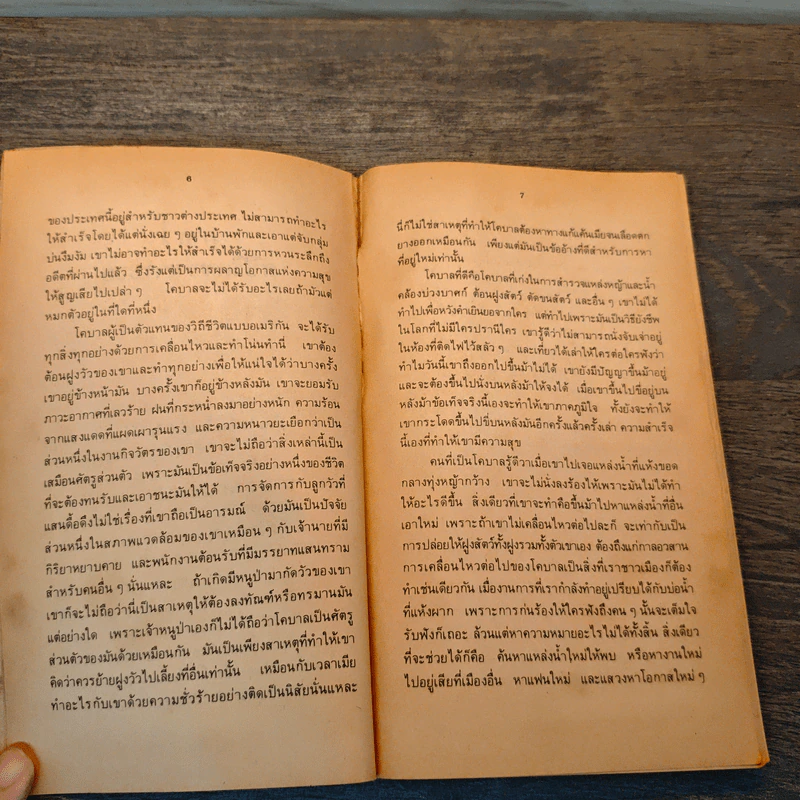 6
ของประเทศนี้อยู่สำหรับชาวต่างประเทศ ไม่สามารถทำอะไร
ให้สำเร็จโดยได้แต่นั่งเฉย ๆ อยู่ในบ้านพักและเอาแต่จับกลุ่ม
บ่นงึมงัม เขาไม่อาจทำอะไรให้สำเร็จได้ด้วยการหวนระลึกถึง
อดีตที่ผ่านไปแล้ว ซึ่งรังแต่เป็นการผลาญโอกาสแห่งความสุข
ให้สูญเสียไปเปล่า ๆ โคบาลจะไม่ได้รับอะไรเลยถ้ามัวแต่
หมกตัวอยู่ในที่ใดที่หนึ่ง
โคบาลผู้เป็นตัวแทนของวิถีชีวิตแบบอเมริกัน จะได้รับ
ทุกสิ่งทุกอย่างด้วยการเคลื่อนไหวและทำโน่นทำนี่ เขาต้อง
ต้อนฝูงวัวของเขาและทำทุกอย่างเพื่อให้แน่ใจได้ว่าบางครั้ง
เขาอยู่ข้างหน้ามัน บางครั้งเขาก็อยู่ข้างหลังมัน เขาจะยอมรับ
ภาวะอากาศที่เลวร้าย ฝนที่กระหน่ำลงมาอย่างหนัก ความร้อน
จากแสงแดดที่แผดเผารุนแรง และความหนาวยะเยือกว่าเป็น
ส่วนหนึ่งในงานกิจวัตรของเขา เขาจะไม่ถือว่าสิ่งเหล่านี้เป็น
เสมือนศัตรูส่วนตัว เพราะมันเป็นข้อเท็จจริงอย่างหนึ่งของชีวิต
ที่จะต้องทนรับและเอาชนะมันให้ได้ การจัดการกับลูกวัวที่
แสนดื้อดึงไม่ใช่เรื่องที่เขาถือเป็นอารมณ์ ด้วยมันเป็นปัจจัย
ส่วนหนึ่งในสภาพแวดล้อมของเขาเหมือน ๆ กับเจ้านายที่มี
กิริยาหยาบคาย และพนักงานต้อนรับที่มีมรรยาทแสนทราม
สำหรับคนอื่น ๆ นั่นแหละ ถ้าเกิดมีหนูป่ามากัดวัวของเขา
เขาก็จะไม่ถือว่านี่เป็นสาเหตุให้ต้องลงทัณฑ์หรือทรมานมัน
แต่อย่างใด เพราะเจ้าหนูป่าเองก็ไม่ได้ถือว่าโคบาลเป็นศัตรู
ส่วนตัวของมันด้วยเหมือนกัน มันเป็นเพียงสาเหตุที่ทำให้เขา
คิดว่าควรย้ายฝูงวัวไปเลี้ยงที่อื่นเท่านั้น เหมือนกับเวลาเมีย
ทำอะไรกับเขาด้วยความชั่วร้ายอย่างติดเป็นนิสัยนั่นแหละ
7
นี่ก็ไม่ใช่สาเหตุที่ทำให้โคบาลต้องหาทางแก้แค้นเมียจนเลือดตก
ยางออกเหมือนกัน เพียงแต่มันเป็นข้ออ้างที่ดีสำหรับการหา
ที่อยู่ใหม่เท่านั้น
โคบาลที่ดีคือโคบาลที่เก่งในการสำรวจแหล่งหญ้าและน้ำ
คล้องบ่วงบาศก์ ต้อนฝูงสัตว์ ตัดขนสัตว์ และอื่น ๆ เขาไม่ได้
ทำไปเพื่อหวังคำเยินยอจากใคร แต่ทำไปเพราะมันเป็นวิธียังชีพ
ในโลกที่ไม่มีใครปรานีใคร เขารู้ดีว่าไม่สามารถนั่งจับเจ่าอยู่
ในห้องที่ติดไฟไว้สลัว ๆ และเที่ยวได้เล่าให้ใครต่อใครฟังว่า
ทำไมวันนี้เขาถึงออกไปขึ้นม้าไม่ได้ เขายังมีปัญญาขึ้นม้าอยู่
และจะต้องขึ้นไปนั่งบนหลังม้าให้จงได้ เมื่อเขาขึ้นไปขี่อยู่บน
หลังม้าข้อเท็จจริงนี้เองจะทำให้เขาภาคภูมิใจ ทั้งยังจะทำให้
เขากระโดดขึ้นไปขี่บนหลังมันอีกครั้งแล้วครั้งเล่า ความสำเร็จ
นี้เองที่ทำให้เขามีความสุข
คนที่เป็นโคบาลรู้ดีว่าเมื่อเขาไปเจอแหล่งน้ำที่แห้งขอด
กลางทุ่งหญ้ากว้าง เขาจะไม่นั่งลงร้องไห้เพราะมันไม่ได้ทำ
ให้อะไรดีขึ้น สิ่งเดียวที่เขาจะทำคือขึ้นม้าไปหาแหล่งน้ำที่อื่น
เอาใหม่ เพราะถ้าเขาไม่เคลื่อนไหวต่อไปละก็ จะเท่ากับเป็น
การปล่อยให้ฝูงสัตว์ทั้งฝูงรวมทั้งตัวเขาเอง ต้องถึงแก่กาลอวสาน
การเคลื่อนไหวต่อไปของโคบาลเป็นสิ่งที่เราชาวเมืองก็ต้อง
ทำเช่นเดียวกัน เมื่องานการที่เรากำลังทำอยู่เปรียบได้กับบ่อน้ำ
ที่แห้งผาก เพราะการก่นร้องให้ใครฟังถึงคน ๆ นั้นจะเต็มใจ
รับฟังก็เถอะ ล้วนแต่หาความหมายอะไรไม่ได้ทั้งสิ้น สิ่งเดียว
ที่จะช่วยได้ก็คือ ค้นหาแหล่งน้ำใหม่ให้พบ หรือหางานใหม่
ไปอยู่เสียที่เมืองอื่น หาแฟนใหม่ และแสวงหาโอกาสใหม่ ๆ